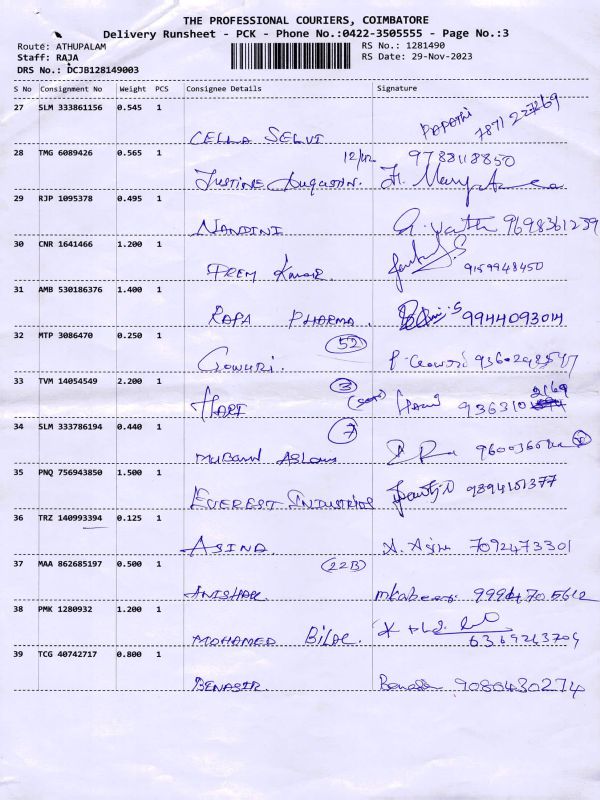 THE PROFESSIONAL COURIERS, COIMBATORE
Delivery Runsheet - PCK - Phone No.:0422-3505555 - Page No.:3
Route: ATHUPALAM RS No.: 1281490
Staff: RAJA RS Date: 29-Nov-2023
DRS No.: DCJB128149003
S No Consignment No Weight PCS Consignee Details Signature
27 SLM 333861156 0.545 1
CELLA SELVI
28 TMG 6089426 0.565 1 9788118850
JUSTINE Augustin.
29 RJP 1095378 0.495 1
NANDINI 9698361239
30 CNR 1641466 1.200 1
PREM Kumar 9159948450
31 AMB 530186376 1.400 1
RAPA PHARMA. 9944093014
32 MTP 3086470 0.250 1 52
Gowuri.
33 TVM 14054549 2.200 1 3 2169
HARI Hari 936310
34 SLM 333786194 0.440 1 7
35 PNQ 756943850 1.500 1
EVEREST INDUSTRIES 9894101377
36 TRZ 140993394 0.125 1
ASINA. A. Asina 7092473301
37 MAA 862685197 0.500 1 (22B)
mkabeer
38 PMK 1280932 1.200 1
MOHAMED Bilal 6369243704
39 TCG 40742717 0.800 1
BENASIR. 9080430274